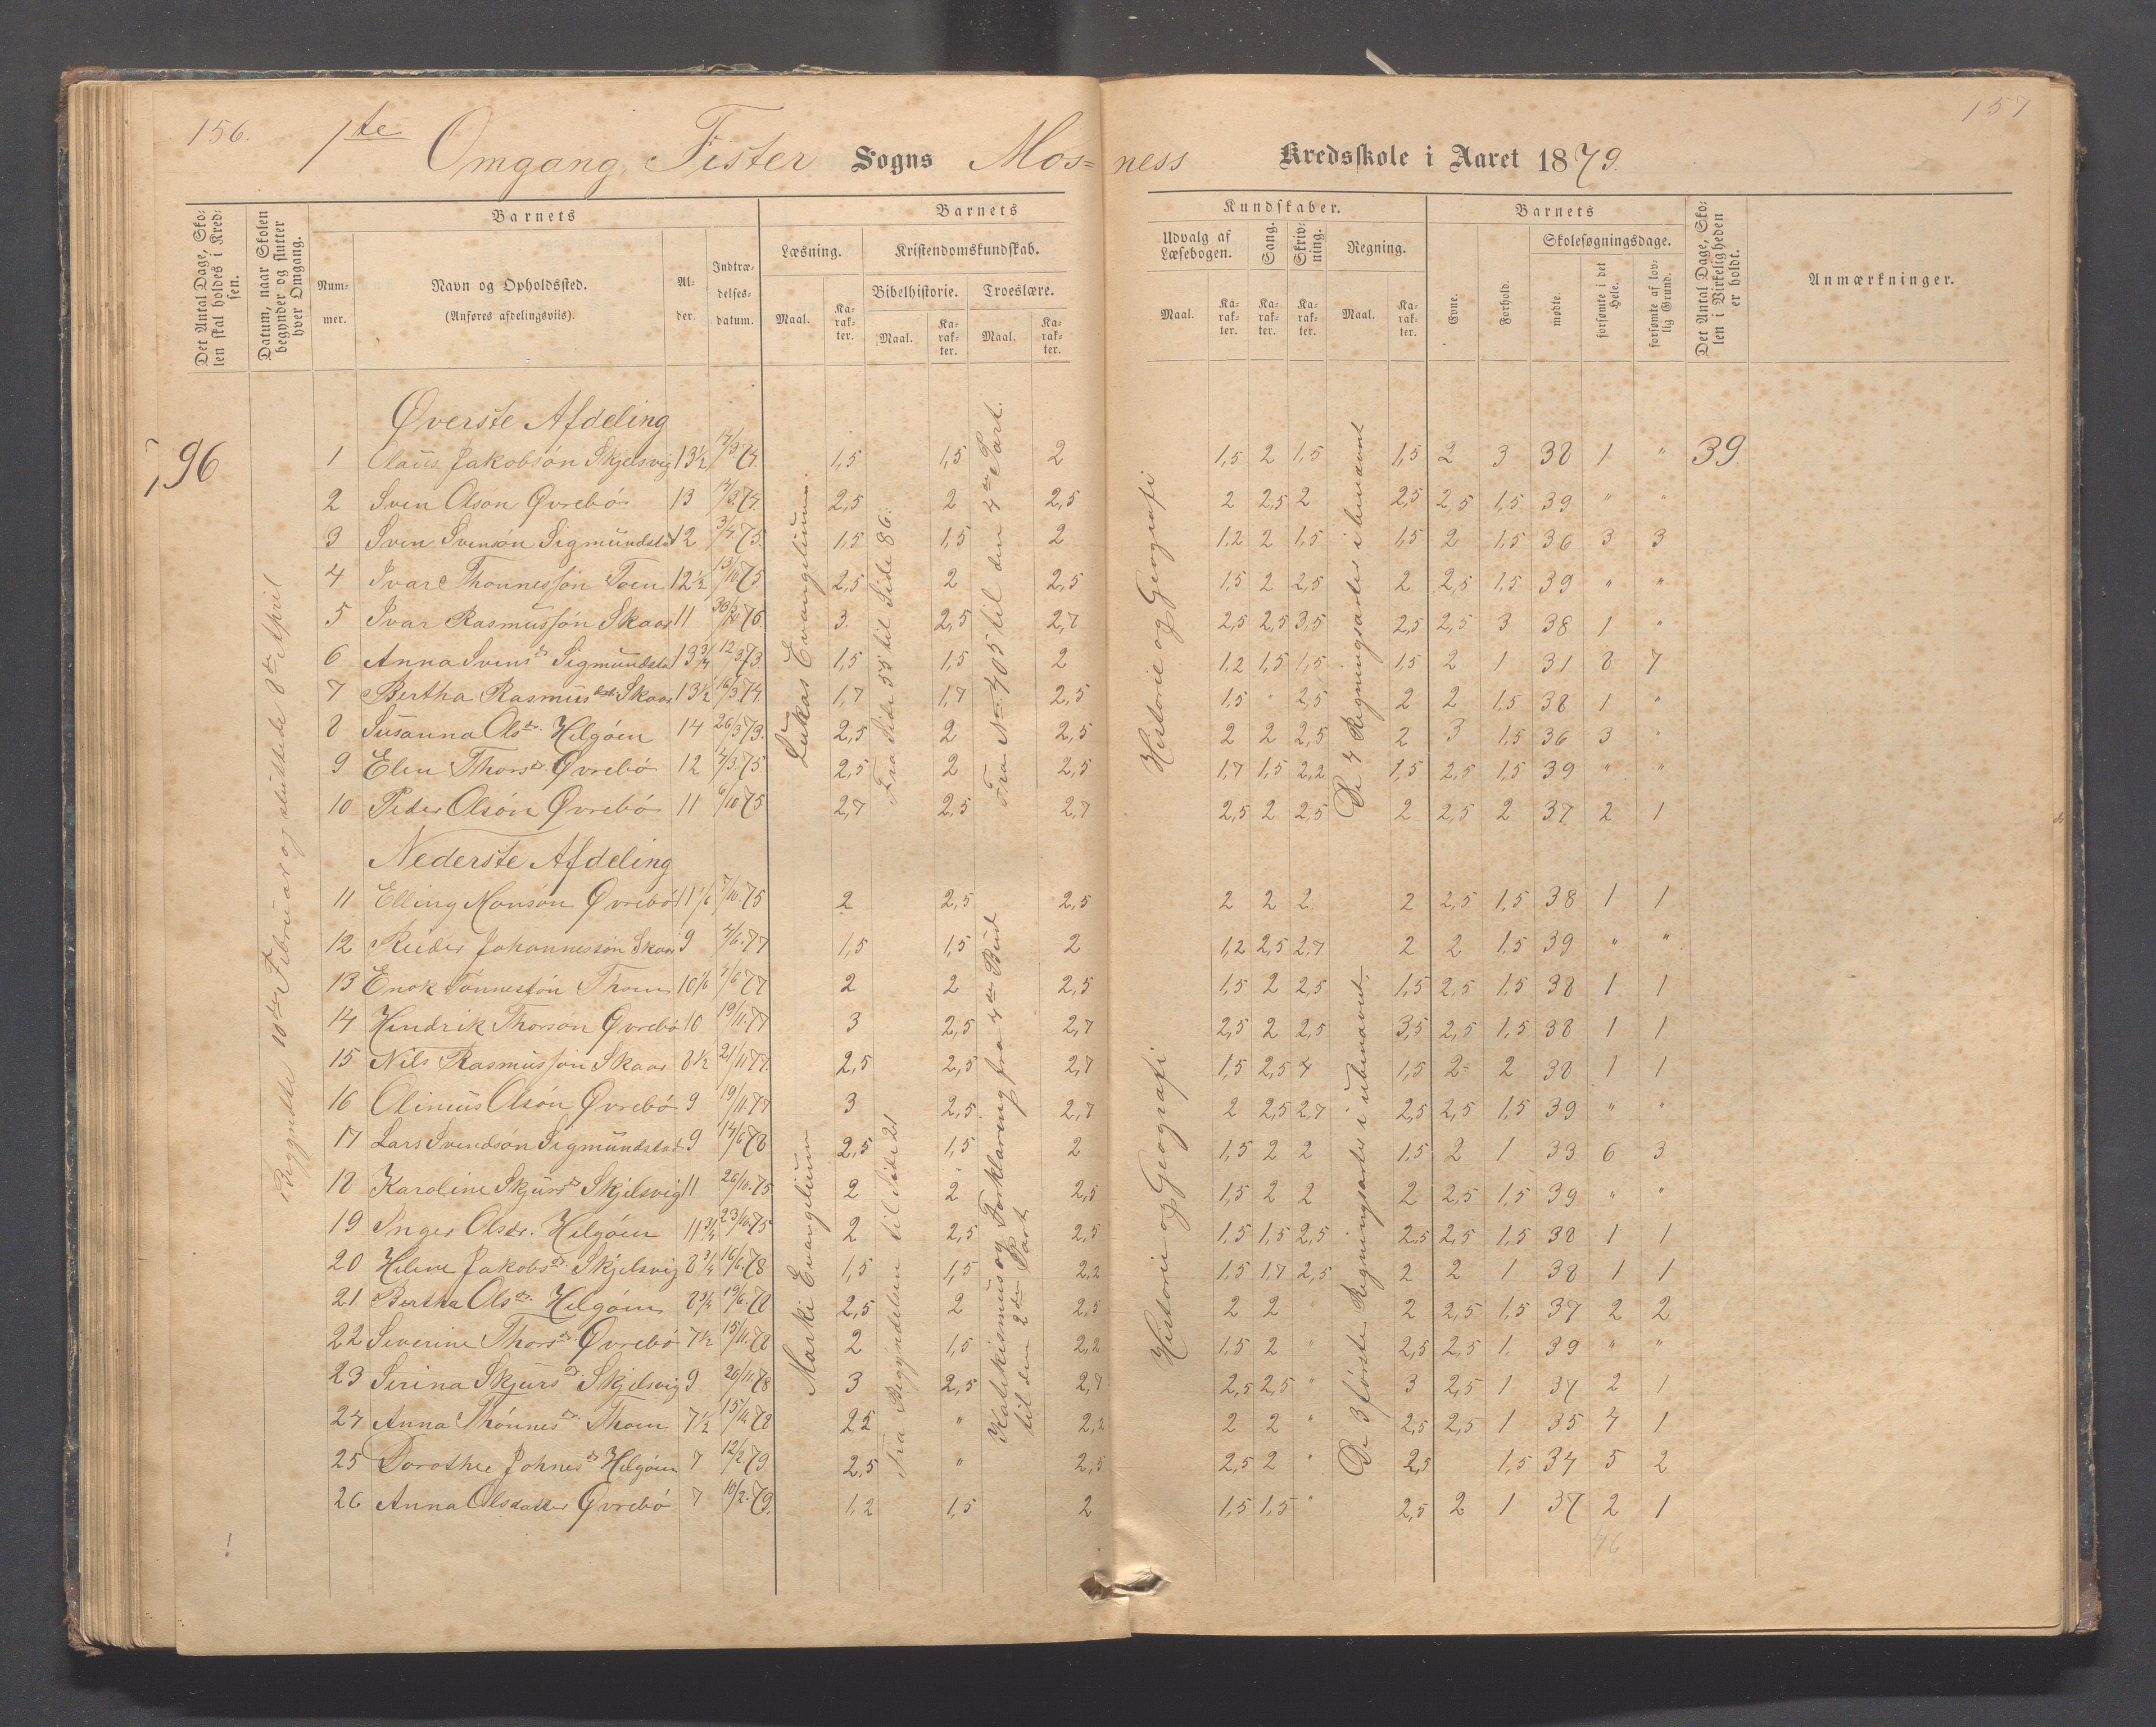 156.
157
1te Omgang, Fister Sogns Mos=ness Kredsskole i Aaret 1879.
Det Antal Dage, Skolen skal holdes i Kredsen.
Datum, naar Skolen begynder og slutter hver Omgang.
Barnets
Nummer.
Navn og Opholdssted. (Anføres afdelingsviis).
Alder.
Indtrædelsesdatum.
Barnets Kundskaber.
Læsning.
Maal. Karakter.
Kristendomskundskab.
Bibelhistorie. Maal. Karakter.
Troeslære. Maal. Karakter.
Udvalg af Læsebogen. Maal. Karakter.
Sang. Karakter.
Skrivning. Karakter.
Regning. Maal. Karakter.
Barnets
Evne.
Forhold.
Skolesøgningsdage.
mødte.
forsømte i det Hele.
forsømte af lovlig Grund.
Det Antal Dage, Skolen i Virkeligheden er holdt.
Anmærkninger.
96
Begyndte 10de Februar og sluttede 8de April
Øverste Afdeling
Lukas Evangelium.
Fra Side 55 til Side 86.
Fra No 405 til den 4de Part.
Historie og Geografi
De 4 Regningsarter i benævnt
1 Claus Jakobsøn Skjelsvig 13½ 14/3 74. 1,5 1,5 2 1,5 2 1,5 1,5 2 3 38 1 " 39
2 Sven Olsøn Øvrebø 13 4/3 74. 2,5 2 2,5 2 2,5 2 2,5 2,5 1,5 39 " "
3 Sven Svensøn Sigmundstad 12 3/4 75. 1,5 1,5 2 1,2 2 1,5 1,5 2 1,5 36 3 3
4 Ivar Thønnessøn Toen 12½ 13/10 75 2,5 2 2,5 1,5 2 2,5 2 2,5 1,5 39 " "
5 Ivar Rasmussøn Skaar 11 76. 3 2,5 2,7 2,5 2,5 3,5 2,5 2,5 3 38 1 "
6 Anna Svensdr Sigmundstad 13¾ 12/3 73. 1,5 1,5 2 1,2 1,5 1,5 1,5 2 1 31 8 7
7 Bertha Rasmusdtr Skaar 13½ 16/3 74. 1,7 1,7 2,5 1,5 " 2,5 2 2 1,5 38 1 "
8 Susanna Olsdr. Helgøen 14 26/3 73. 2,5 2 2,5 2 2 2,5 2 3 1,5 36 3 "
9 Elen Thorsdr. Øvrebø 12 4/3 75 2,5 2 2,5 1,7 1,5 2,2 1,5 2,5 1,5 39 " "
10 Peder Olsøn Øvrebø 11 6/10 75 2,7 2,5 2,7 2,5 2 2,5 2 2,5 2 37 2 1
Nederste Afdeling
Marki Evangelium
Fra Begyndelsen til Side 21
Katekismus og Forklaring fra 4de Bud til den 2den Part
Historie og Geografi
De 3 første Regningsarter i ubenævnt.
11 Elling Monsøn Øvrebø 11 1/6 7/10. 75 2 2,5 2,5 2 2 2 2 2,5 1,5 38 1 1
12 Reider Johannessøn Skaar 9 4/6. 77 1,5 1,5 2 1,2 2,5 2,7 2 2 1,5 39 " "
13 Enok Tønnessøn Thoen 10 1/6 4/6 77 2 2 2,5 1,5 2 2,5 1,5 2,5 1,5 38 1 1
14 Hendrik Thorsøn Øvrebø 10 19/11. 77 3 2,5 2,7 2,5 2 2,5 3,5 2,5 1,5 38 1 1
15 Nils Rasmussøn Skaar 8½ 21/11 77. 2,5 2,5 2,7 1,5 2,5 4 1,5 2 2 38 1 1
16 Olinius Olsøn Øvrebø 9 19/11. 77 3 2,5 2,7 2 2,5 2,7 2,5 2,5 1,5 39 " "
17 Lars Svendsøn Sigmundstad 9 14/6 78 2,5 1,5 2 1,5 2 2 1,5 2 1 33 6 3
18 Karoline Skjursdr Skjelsvig 11 26/10. 75 2 2 2,5 1,5 2 2 2 2,5 1,5 39 " "
19 Inger Olsdr. Helgøen 11¾ 23/10. 75 2 2,5 2,5 1,5 1,5 2,5 2,5 2,5 1,5 38 1 1
20 Helene Jakobsdr. Skjelsvig 8¾ 16/6. 78 1,5 1,5 2,2 1,5 1,7 2,5 2 2 1 38 1 1
21 Bertha Olsdr. Helgøen 8¾ 19/6. 78 2,5 2 2,5 2 2 " 2 2,5 1,5 37 2 2
22 Severine Thorsdr. Øvrebø 7½ 15/11. 78 2 1,5 2,2 1,5 2 " 2,5 2,5 1. 39 " "
23 Serina Skjursdr. Skjelsvig 9 20/11. 78 3 2,5 2,7 2,5 2,5 " 3 2,5 1 37 2 1
24 Anna Thønnesdr. Thoen 7½ 15/11. 78 2,5 " 2,2 2 2 " 2,5 2,5 1 35 4 1
25 Dorothe Johnesdr Helgøen 7 12/2. 79 2,5 " 2,5 2,5 2 " 2,5 1,5 34 5 2
26 Anna Olsdatter Øvrebø 7 10/2. 79. 1,2 1,5 2 1,5 1,5 " 2,5 2 1 37 2 1
46